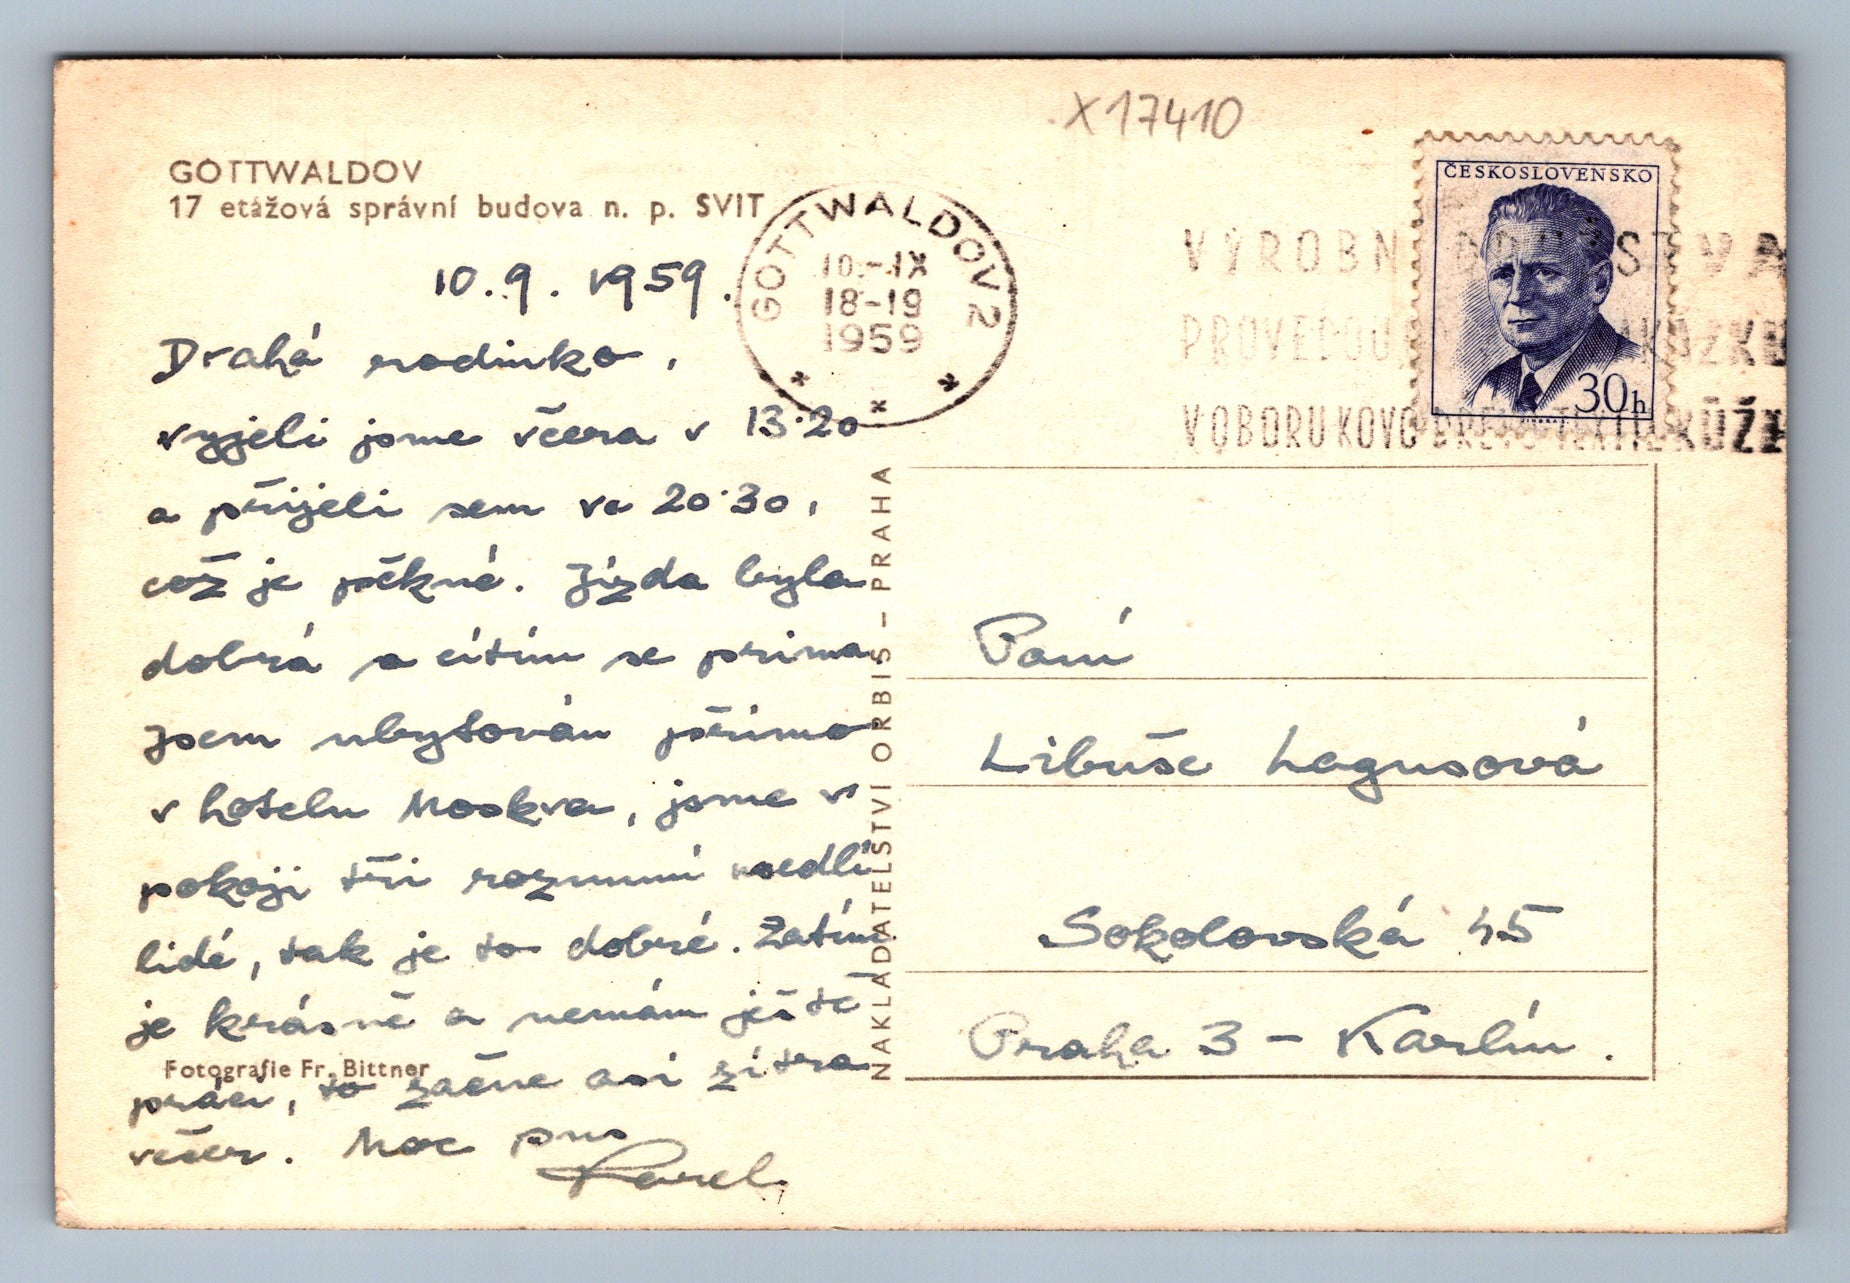 X17410
GOTTWALDOV
17 etážová správní budova n. p. SVIT
ČESKOSLOVENSKO
30h
GOTTWALDOV 2
10.-IX
18-19
1959
VÝROBN STVA
PROVEDOU ZAKÁZKU
V OBORU KOVO DŘEVO TEXTIL KŮŽE
10.9.1959.
Drahá rodinko,
vyjeli jsme včera v 13·20
a přijeli sem ve 20·30,
což je pěkné. Jízda byla
dobrá a cítím se prima.
Jsem ubytován přímo
v hotelu Moskva, jsme v
pokoji tři rozumní usedlí
lidé, tak je to dobré. Zatím
je krásně a nemám ještě
práci, to začne asi zítra
večer. Moc pus
Karel
Fotografie Fr. Bittner
NAKLADATELSTVÍ ORBIS – PRAHA
Paní
Libuše Lagusová
Sokolovská 45
Praha 3 – Karlín.